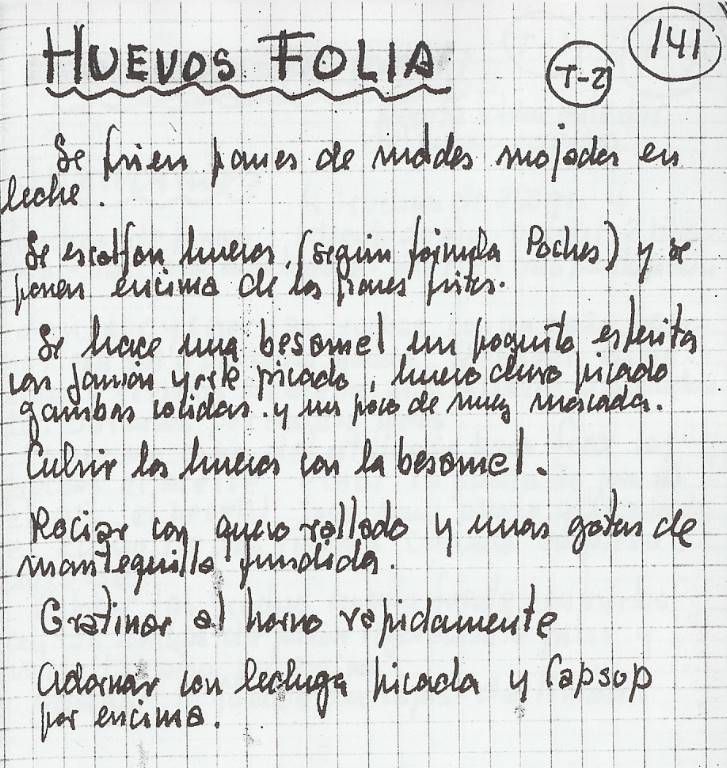 HUEVOS FOLIA
T-2
141
Se frien panes de moldes mojados en
leche.
Se escalfan huevos, (según fórmula Poches) y se
ponen encima de los panes fritos.
Se hace una besamel un poquito espesita
con jamón york picado, huevo duro picado
gambas cocidas. y un poco de nuez moscada.
Cubrir los huevos con la besamel.
Rociar con queso rallado y unas gotas de
mantequilla fundida.
Gratinar al horno rapidamente
Adornar con lechuga picada y
por encima.